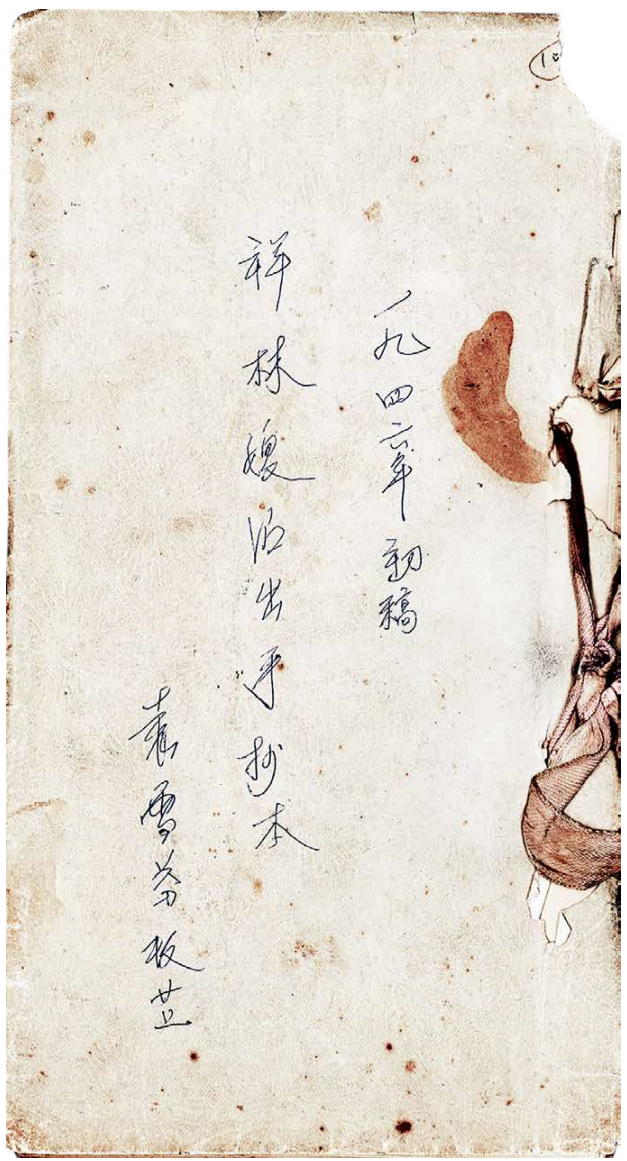 一九四六年初稿
祥林嫂演出手抄本
袁雪芬